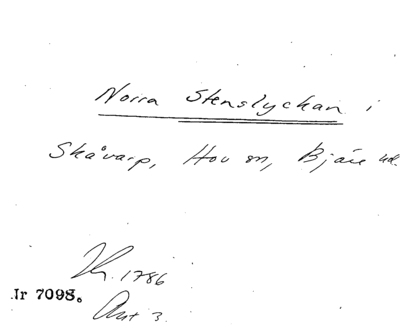 Norra Stenslyckan i
Skåvarp, Hov sn, Bjäre hd.
Nr 7098.
1786
Akt 3.